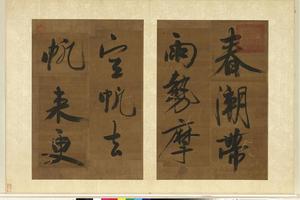 春潮帶
雨勢摩
空帆去
帆來更